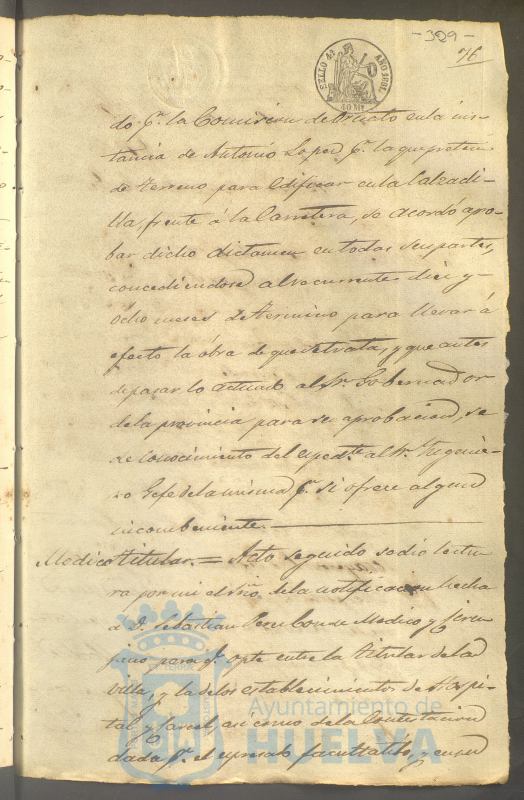 -329-
76
SELLO 4º AÑO 1861
40 Ms
do pr. la Comision de Ornato en la ins-
tancia de Antonio Lopez pr. la que pretende
de terreno para edificar en la Calzadi-
lla, frente á la Carretera, se acordó apro-
bar dicho dictamen en todas sus partes,
concediendose al recurrente diez y
ocho meses de termino para llevar á
efecto la obra de que se trata, y que antes
de pasar lo actuado al Sr. Gobernador
de la provincia para su aprobacion, se
de conocimiento del espedte. al Sr. Ingenie-
ro Gefe de la misma pr. si ofrece algun
incombeniente.
Medico titular.= Acto seguido se dio lectu-
ra por mi el Srio. de la notificacion hecha
a D. Sebastian Perez Medico y Ciru-
jano para qe. opte entre la titular de la
Villa, y la de los establecimientos de Hospi-
tal y Carcel, asi como de la Contestacion
dada pr. el espresado facultativo, y en su
Ayuntamiento de
HUELVA